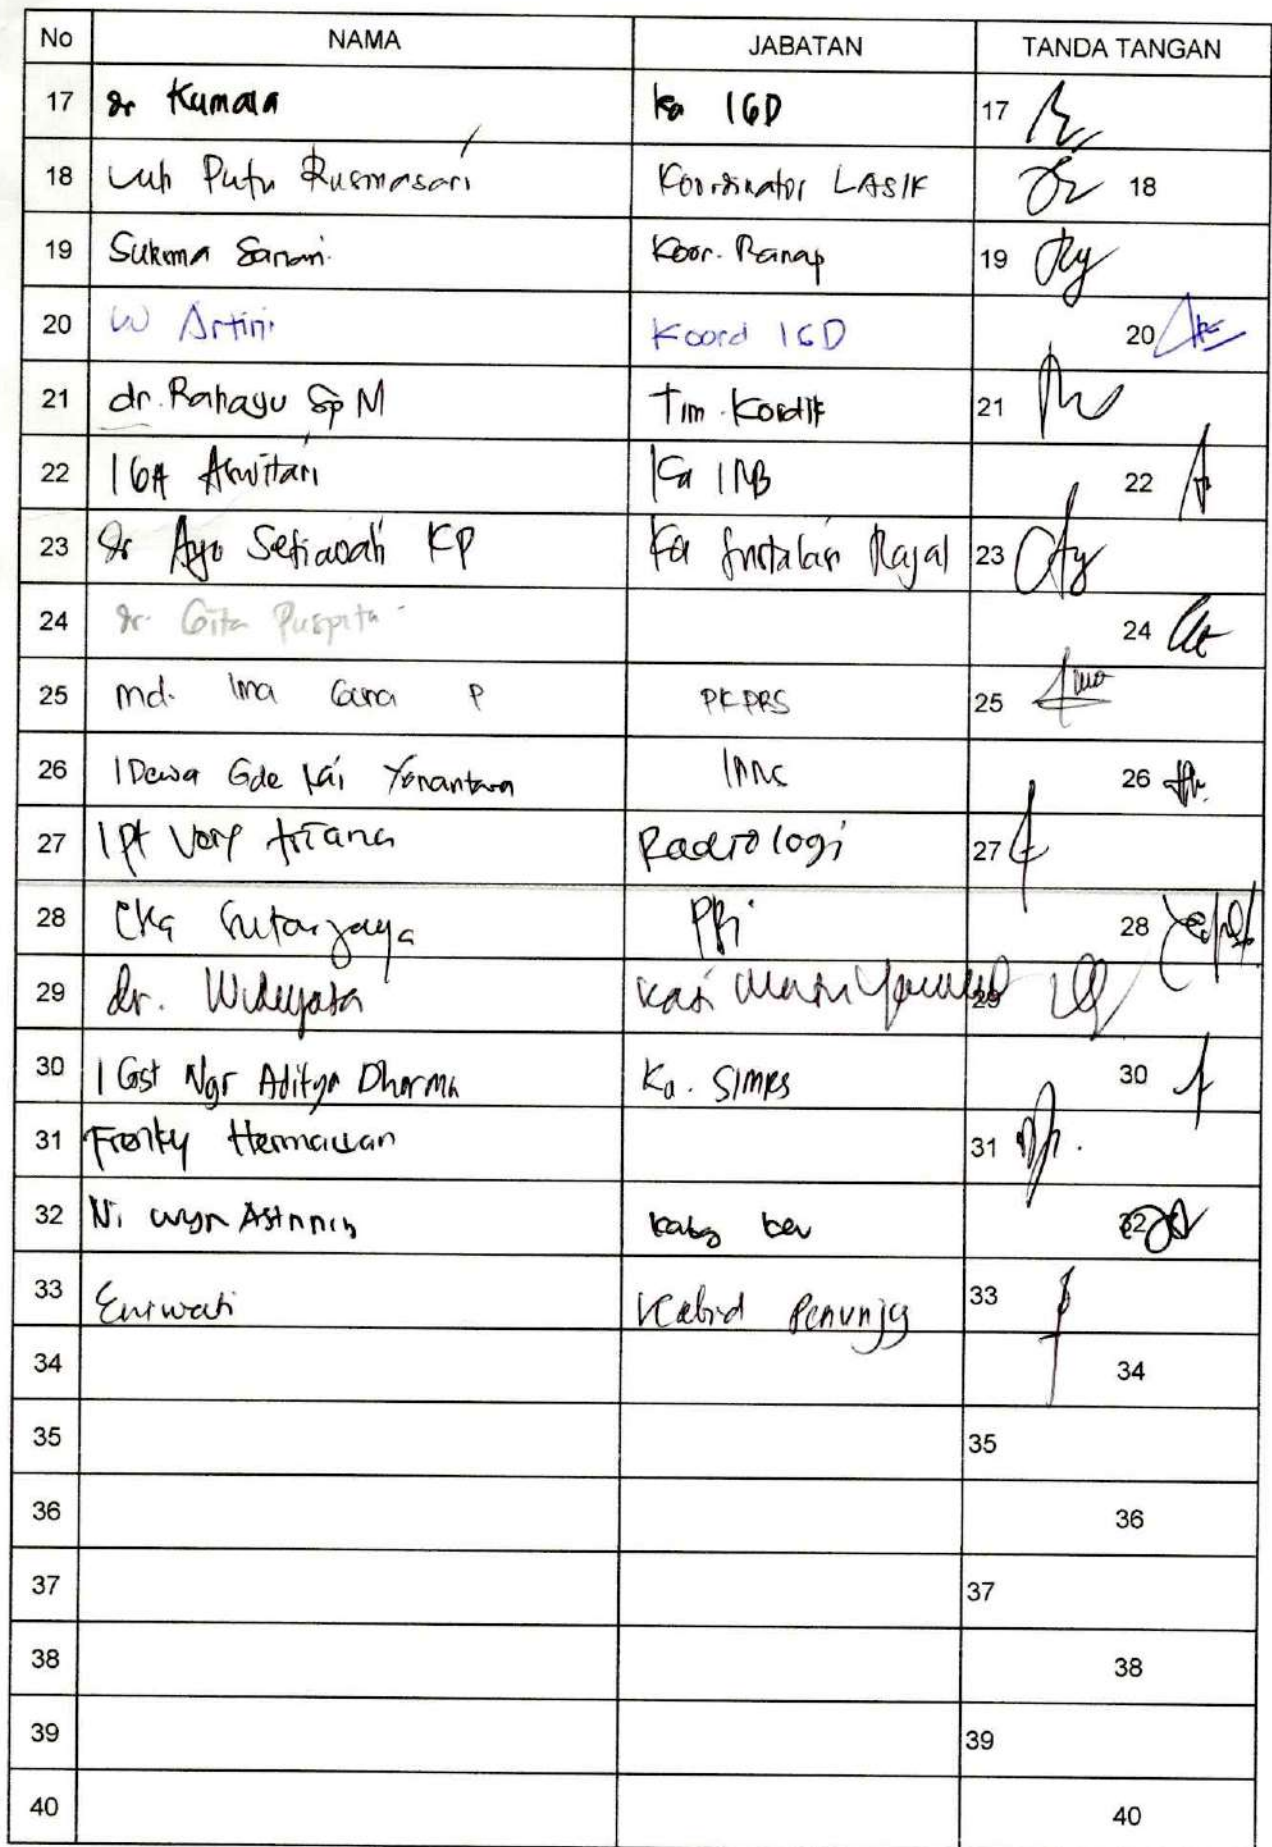 No NAMA JABATAN TANDA TANGAN
17 dr Kumala Ka IGD 17
18 Luh Putu Rusmasari Koordinator LASIK 18
19 Sukma Sanam Koor. Ranap 19
20 W Artini Koord IGD 20
21 dr. Rahayu Sp M Tim Kordik 21
22 IGA Ka 22
23 dr Ayu Setiawati KP Ka Instalasi Rajal 23
24 dr. Gita Puspita 24
25 md. Ima Cara P PKPRS 25
26 I Dewa Gde Yonantara 26
27 I Pt Radiologi 27
28 28
29 dr. Kasi 29
30 I Gst Ngr Aditya Dharma Ka. SIMRS 30
31 Hermawan 31
32 Ni Wyn 32
33 Eniwati Kabid Penunjg 33
34 34
35 35
36 36
37 37
38 38
39 39
40 40